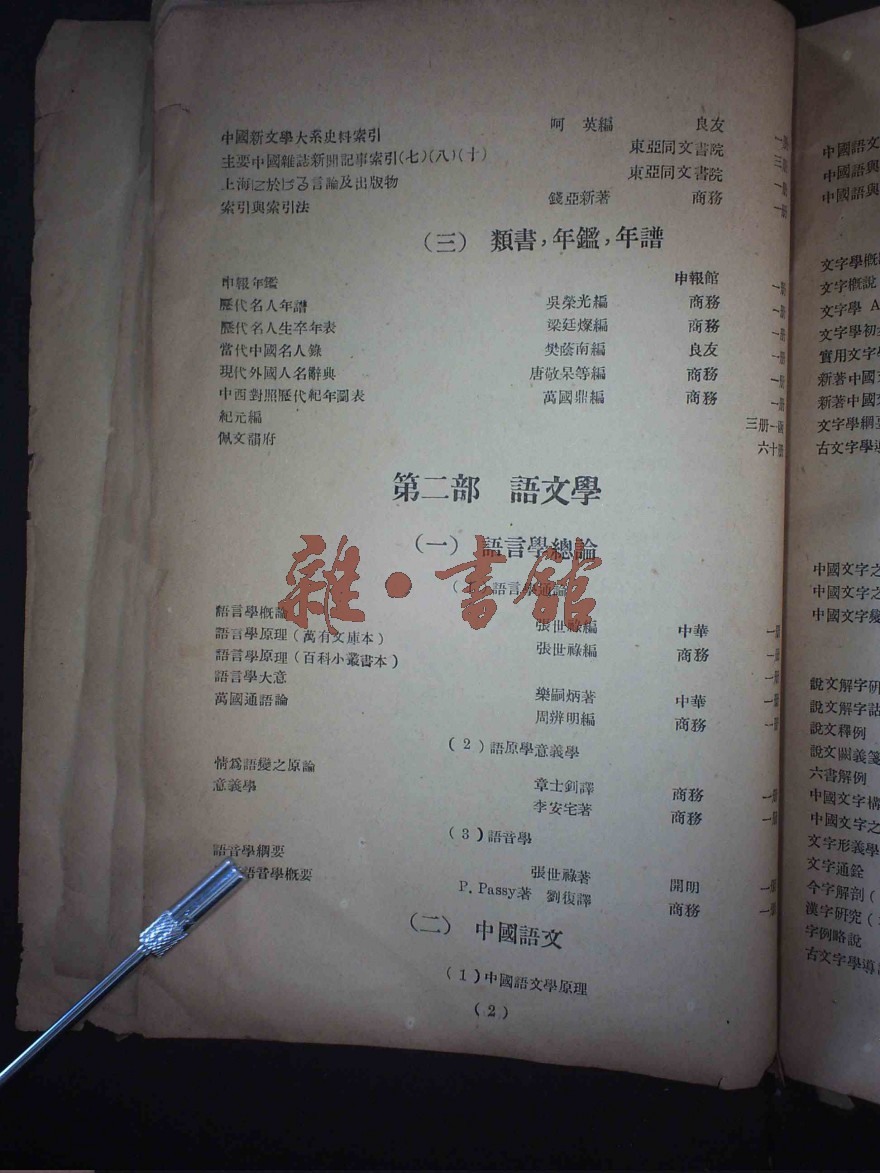 中國新文學大系史料索引 阿 英編 良友 一册
主要中國雜誌新聞記事索引(七)(八)(十) 東亞同文書院 三册
上海に於ける言論及出版物 東亞同文書院 一册
索引與索引法 錢亞新著 商務 一册
(三) 類書,年鑑,年譜
申報年鑑 申報館 一册
歷代名人年譜 吳榮光編 商務 一册
歷代名人生卒年表 梁廷燦編 商務 一册
當代中國名人錄 樊蔭南編 良友 一册
現代外國人名辭典 唐敬杲等編 商務 一册
中西對照歷代紀年圖表 萬國鼎編 商務 一册
紀元編 三册一函
佩文韻府 六十册
第二部 語文學
(一) 語言學總論
(1)語言學通論
語言學概論 張世祿編 中華 一册
語言學原理(萬有文庫本) 張世祿編 商務 一册
語言學原理(百科小叢書本) 一册
語言學大意 樂嗣炳著 中華 一册
萬國通語論 周辨明編 商務 一册
(2)語原學意義學
情爲語變之原論 章士釗譯 商務 一册
意義學 李安宅著 商務 一册
(3)語音學
語音學綱要 張世祿著 開明 一册
語音學概要 P. Passy著 劉復譯 商務 一册
(二) 中國語文
(1)中國語文學原理
(2)
雜·書館
中國語文
中國語與
中國語與
文字學概
文字概說
文字學 A
文字學初
實用文字
新著中國
新著中國
文字學綱
古文字學
中國文字之
中國文字之
中國文字變
說文解字研
說文解字詁
說文釋例
說文闕義箋
六書解例
中國文字構
中國文字之
文字形義學
文字通詮
今字解剖(
漢字研究(
字例略說
古文字學導